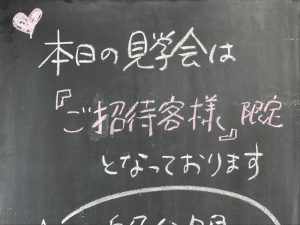 本日の見学会は
『ご招待客様』限定
となっております